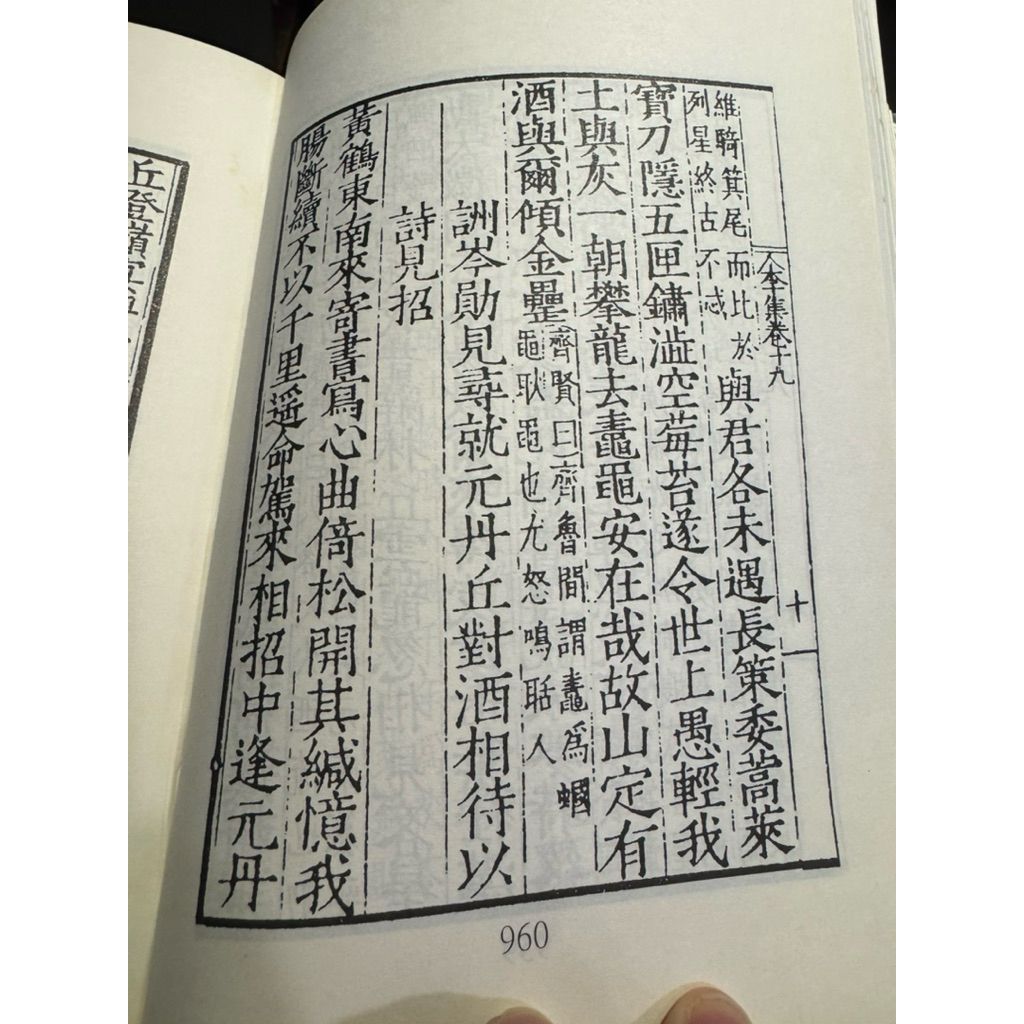 集卷十九
十
維騎箕尾而比於
列星終古不忒
與君各未遇長策委蒿萊
寶刀隱五匣鏽澁空莓苔遂令世上愚輕我
土與灰一朝攀龍去鼃黽安在哉故山定有
酒與爾傾金罍
齊賢曰齊魯間謂鼃為蟈
黽耿黽也尤怒鳴聒人
詶岑勛見尋就元丹丘對酒相待以
詩見招
黃鶴東南來寄書寫心曲倚松開其緘憶我
腸斷續不以千里遥命駕來相招中逢元丹
960
丘登嶺宴